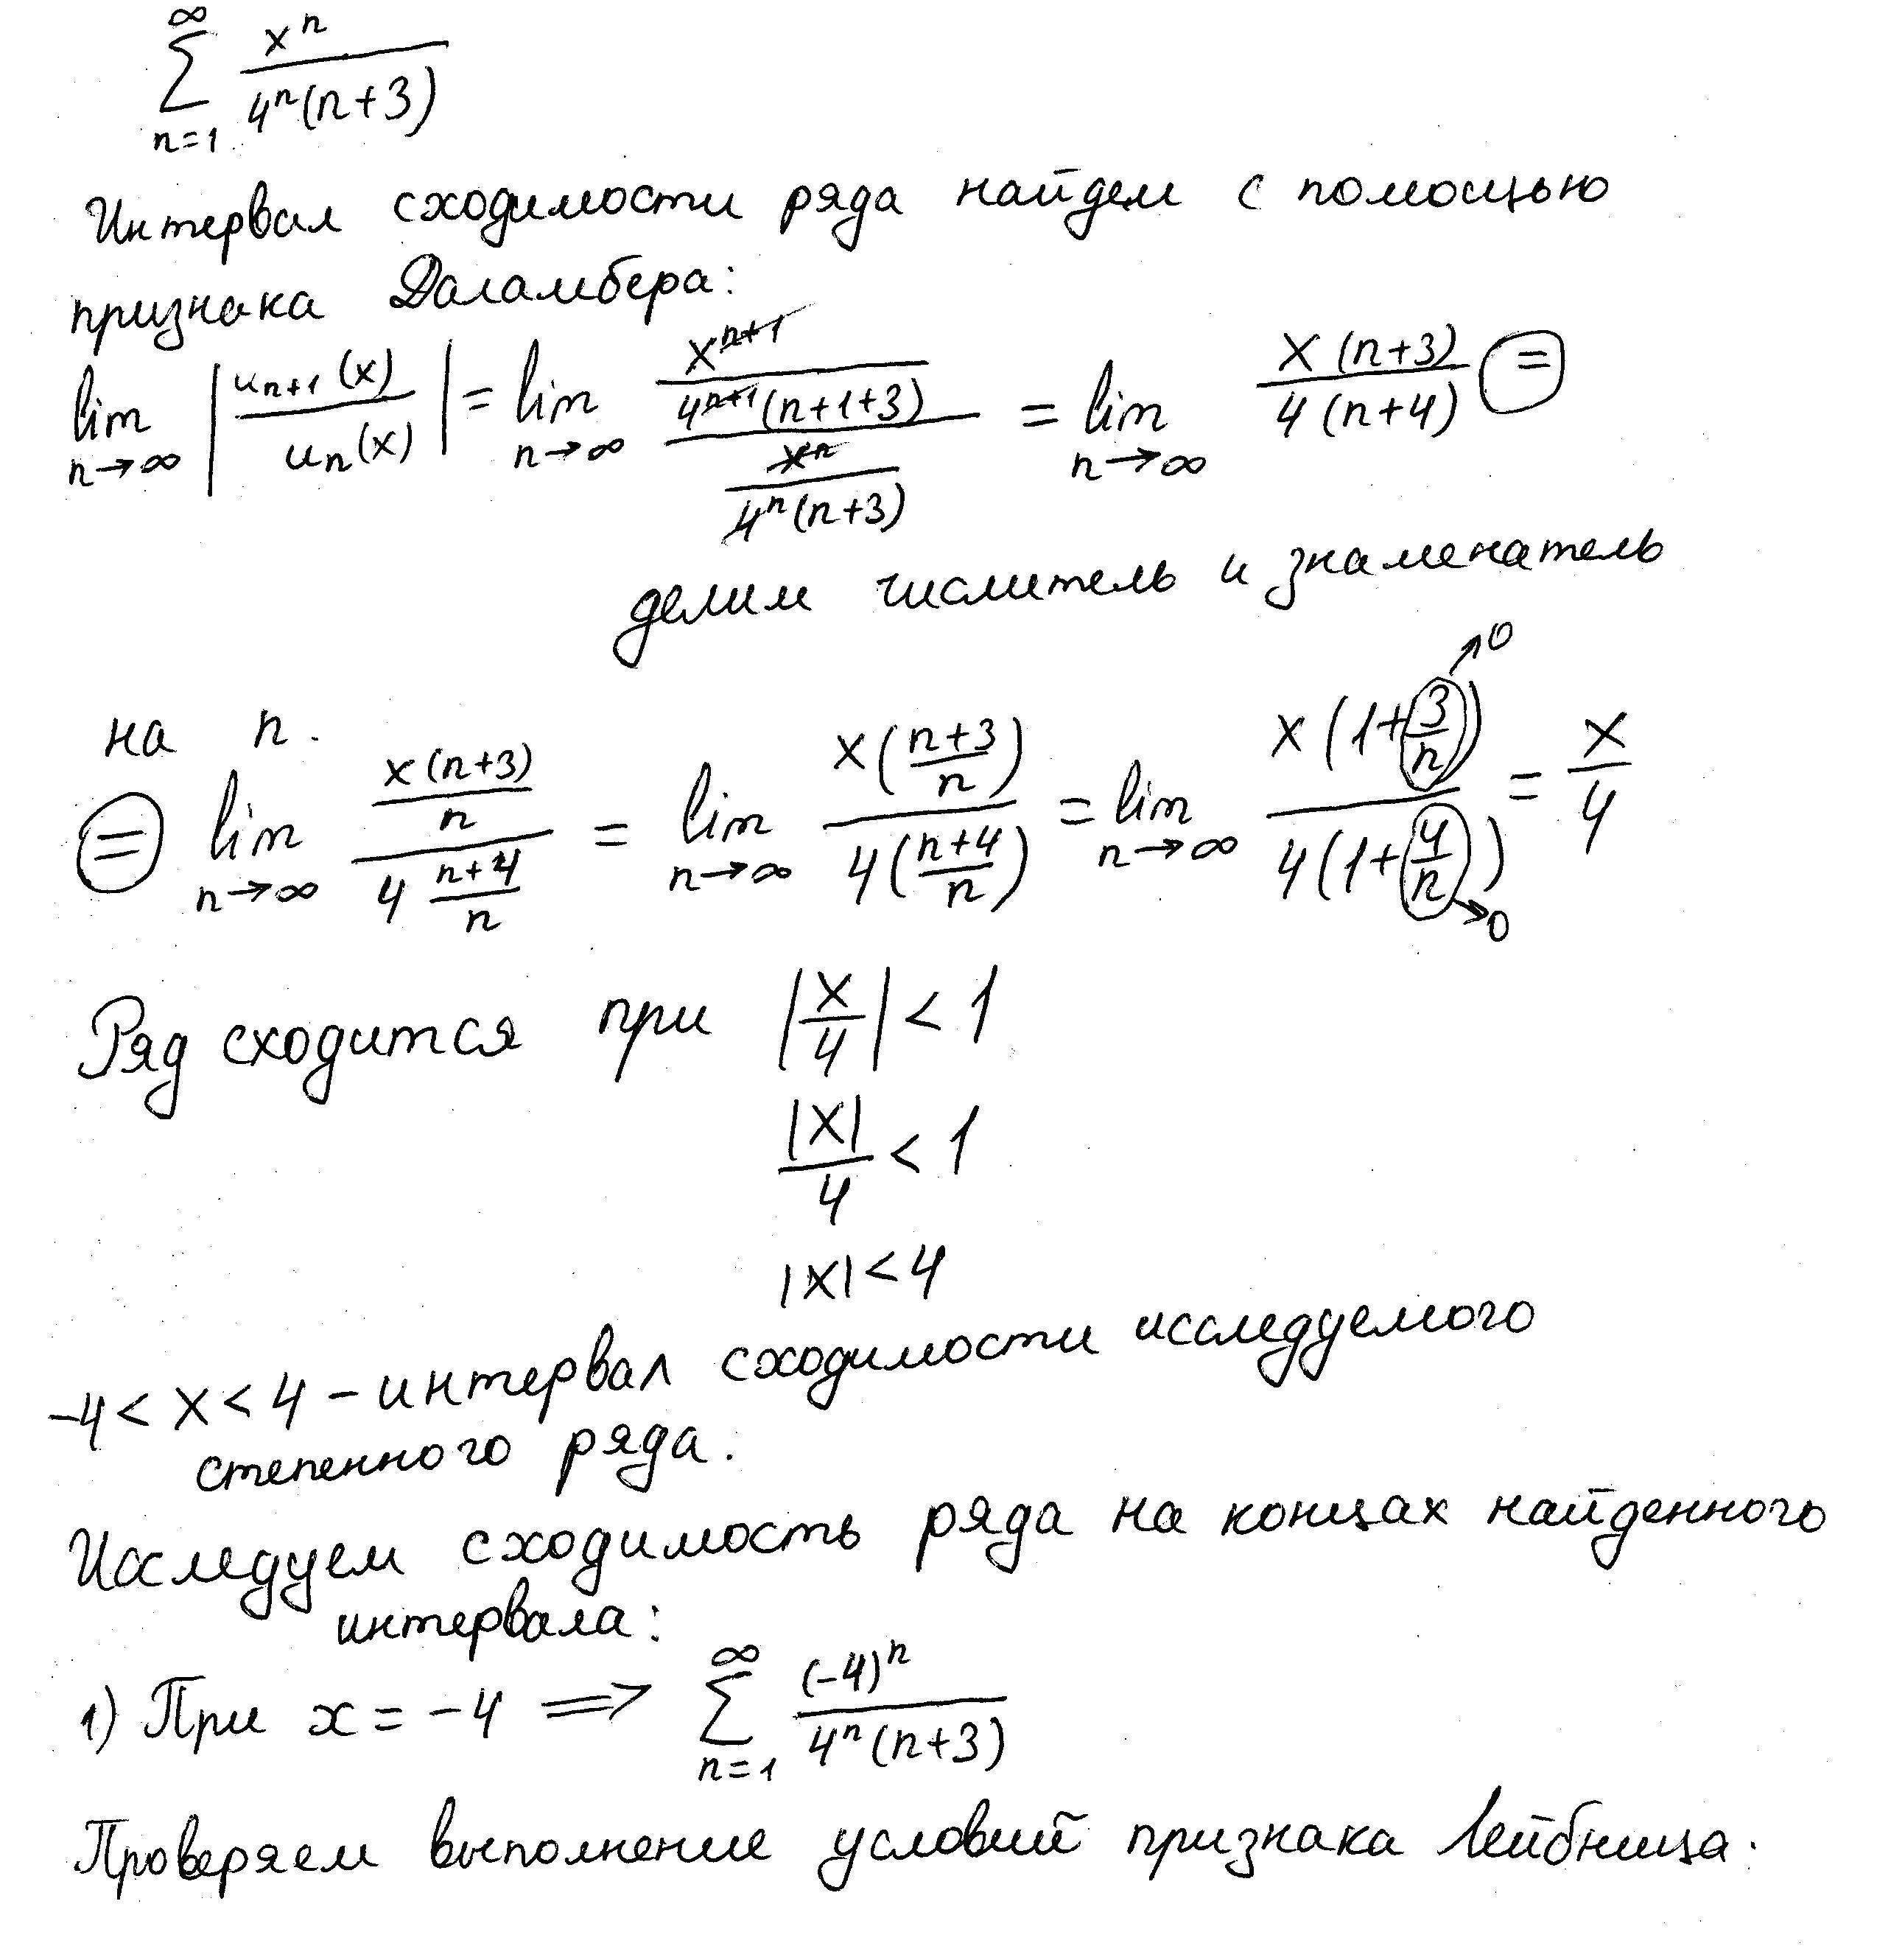 ∑_{n=1}^{∞} x^n / (4^n (n+3))
Интервал сходимости ряда найдем с помощью
признака Даламбера:
lim_{n→∞} |u_{n+1}(x) / u_n(x)| = lim_{n→∞} (x^{n+1} / (4^{n+1}(n+1+3))) / (x^n / (4^n(n+3))) = lim_{n→∞} x(n+3) / (4(n+4)) =
делим числитель и знаменатель
на n.
= lim_{n→∞} (x(n+3)/n) / (4 (n+4)/n) = lim_{n→∞} x((n+3)/n) / (4((n+4)/n)) = lim_{n→∞} x(1+3/n) / (4(1+4/n)) = x/4
→0
→0
Ряд сходится при |x/4| < 1
|x|/4 < 1
|x| < 4
-4 < x < 4 – интервал сходимости исследуемого
степенного ряда.
Исследуем сходимость ряда на концах найденного
интервала:
1) При x = -4 ⟹ ∑_{n=1}^{∞} (-4)^n / (4^n (n+3))
Проверяем выполнение условий признака Лейбница.